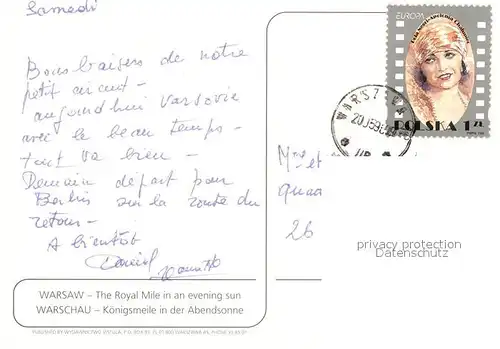 Samedi
Bons baisers de notre
petit circuit -
aujourd'hui Varsovie
avec le beau temps -
tout va bien -
Demain départ pour
Berlin sur la route du
retour -
A bientôt
Daniel
EUROPA
POLSKA 1 zł
WARSZ
Mme et
26
privacy protection
Datenschutz
WARSAW – The Royal Mile in an evening sun
WARSCHAU – Königsmeile in der Abendsonne